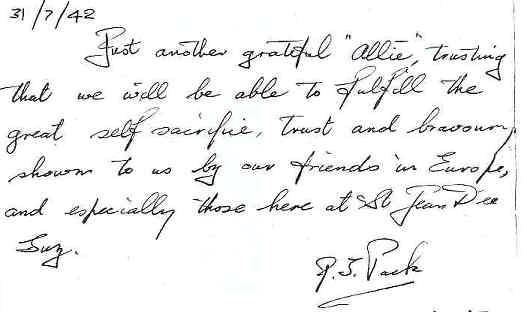 31/7/42
Just another grateful "Allie", trusting
that we will be able to fulfill the
great self sacrifice, trust and bravoury
shown to us by our friends in Europe,
and especially those here at St Jean Dee
Luz.
P. J. Pack